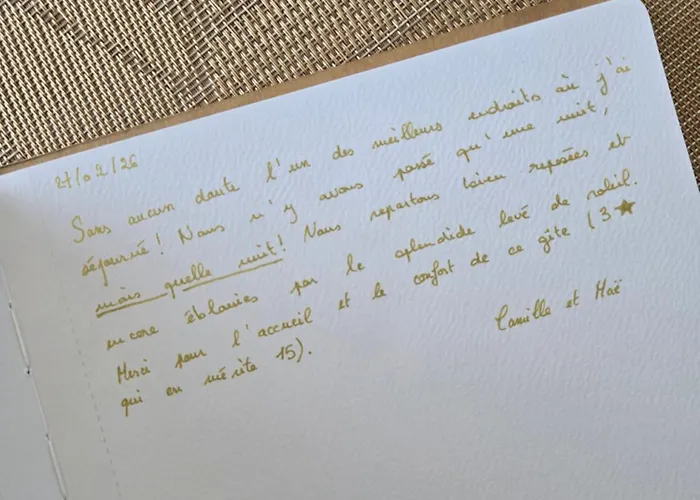 27/02/26
Sans aucun doute l'un des meilleurs endroits où j'ai
séjourné ! Nous n'y avons passé qu'une nuit,
mais quelle nuit ! Nous repartons bien reposées et
encore éblouies par le splendide levé de soleil.
Merci pour l'accueil et le confort de ce gîte (3★
qui en mérite 15).
Camille et Maë